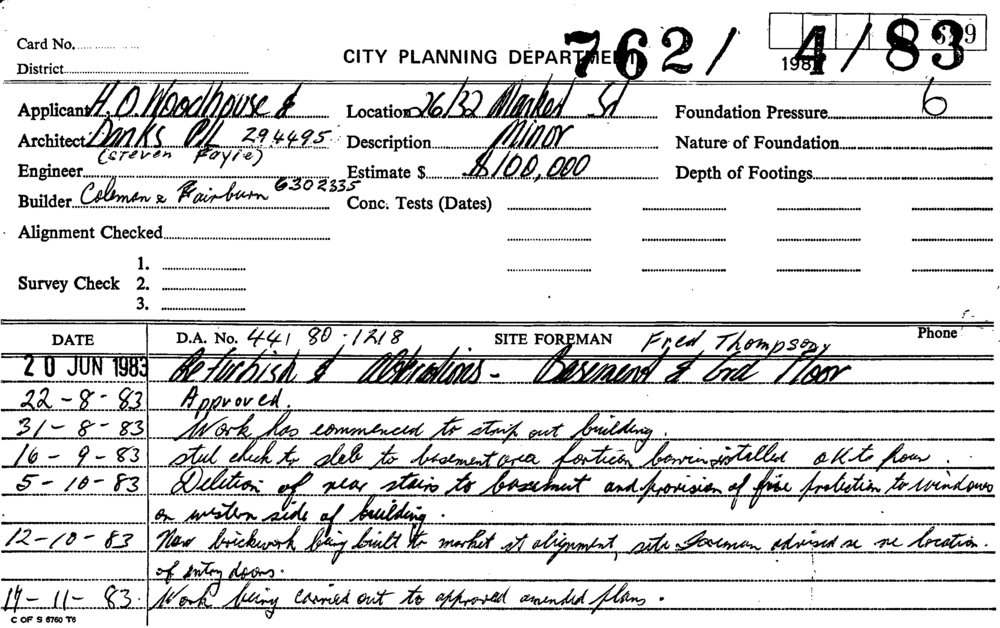 Card No.
CITY PLANNING DEPARTMENT 762/ 4/83
District
198
Applicant H. O. Woodhouse & Location 26/32 Market St Foundation Pressure 6
Architect Danks P/L 294495 Description Minor Nature of Foundation
(Steven Fayle)
Engineer Estimate $ $100,000 Depth of Footings
Builder Coleman & Fairburn 6302335 Conc. Tests (Dates)
Alignment Checked
1.
Survey Check 2.
3.
DATE D.A. No. 441 80-1218 SITE FOREMAN Fred Thompson Phone
20 JUN 1983 Refurbish & Alterations - Basement & Grd Floor
22-8-83 Approved.
31-8-83 Work has commenced to strip out building.
16-9-83 steel check to slab to basement area installed OK to pour.
5-10-83 Deletion of rear stairs to basement and provision of fire protection to windows
on western side of building.
12-10-83 New brickwork being built to market st alignment, site foreman advised re location
of entry doors.
17-11-83. Work being carried out to approved amended plans.
C OF S 6760 T6